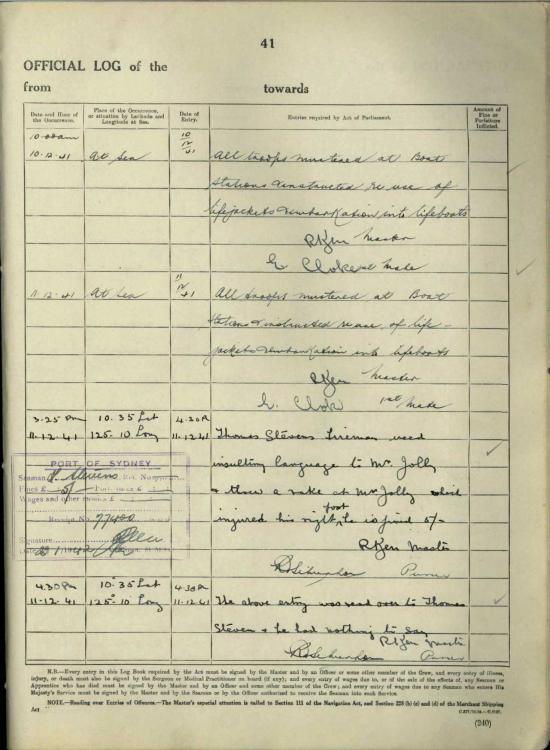 41
OFFICIAL LOG of the
from towards
Date and Hour of the Occurrence.
Place of the Occurrence, or situation by Latitude and Longitude at Sea.
Date of Entry.
Entries required by Act of Parliament.
Amount of Fine or Forfeiture Inflicted.
10.00am 10/12/41
10.12.41 At Sea All troops mustered at Boat
Stations & instructed re use of
lifejackets & embarkation into lifeboats
RKerr Master
E Cloke 1st Mate
11.12.41 At Sea 11/12/41 All troops mustered at Boat
Stations & instructed re use of life-
jackets & embarkation into lifeboats
RKerr Master
E. Clok 1st Mate
3.25 PM 10.35 Lat 4.20P
11.12.41 125.10 Long 11.12.41 Thomas Stevens Fireman used
insulting language to Mr. Jolly
& threw a rake at Mr Jolly which
injured his right foot, he is fined 5/-
RKerr Master
Purser
PORT OF SYDNEY
Seaman T. Stevens
Fines £ 5/-
Wages and other
Receipt No. 77400
Signature
4.30 PM 10.35 Lat 4.30 PM
11-12-41 125° 10 Long 11.12.41 The above entry was read over to Thomas
Stevens & he had nothing to say
RKerr Master
Purser
N.B.—Every entry in this Log Book required by the Act must be signed by the Master and by an Officer or some other member of the Crew, and every entry of illness,
injury, or death must also be signed by the Surgeon or Medical Practitioner on board (if any); and every entry of wages due to, or of the sale of the effects of, any Seaman or
Apprentice who has died must be signed by the Master and by an Officer and some other member of the Crew; and every entry of wages due to any Seaman who enters His
Majesty's Service must be signed by the Master and by the Seaman or by the Officer authorised to receive the Seaman into such Service.
NOTE.—Reading over Entries of Offences.—The Master's especial attention is called to Section 111 of the Navigation Act, and Section 228 (b) (c) and (d) of the Merchant Shipping
Act
(240)